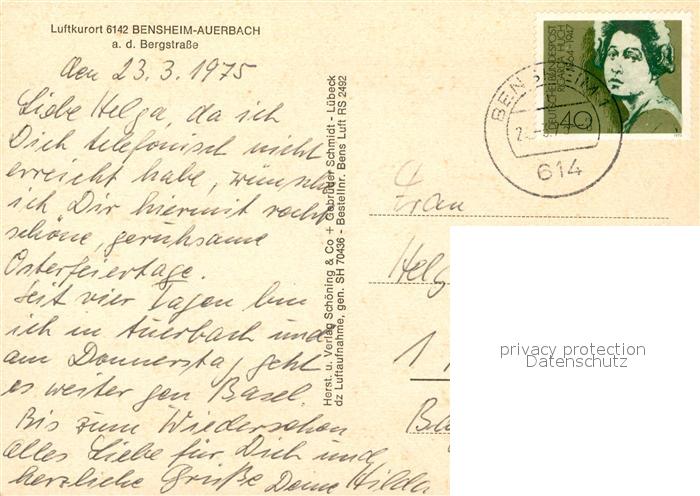 Luftkurort 6142 BENSHEIM-AUERBACH
a. d. Bergstraße
den 23.3.1975
Liebe Helga, da ich
Dich telefonisch nicht
erreicht habe, wünsche
ich Dir hiermit recht
schöne, geruhsame
Osterfeiertage.
Seit vier Tagen bin
ich in Auerbach und
am Donnerstag geht
es weiter gen Basel.
Bis zum Wiedersehen
alles Liebe für Dich und
herzliche Grüße Deine Hilda
Herst. u. Verlag Schöning & Co + Gebrüder Schmidt - Lübeck
dz Luftaufnahme, gen. SH 70436 - Bestellnr. Bens Luft RS 2492
DEUTSCHE BUNDESPOST
RICARDA HUCH
1864-1947
40
BENSHEIM 1
614
Frau
Helg
1
privacy protection
Datenschutz